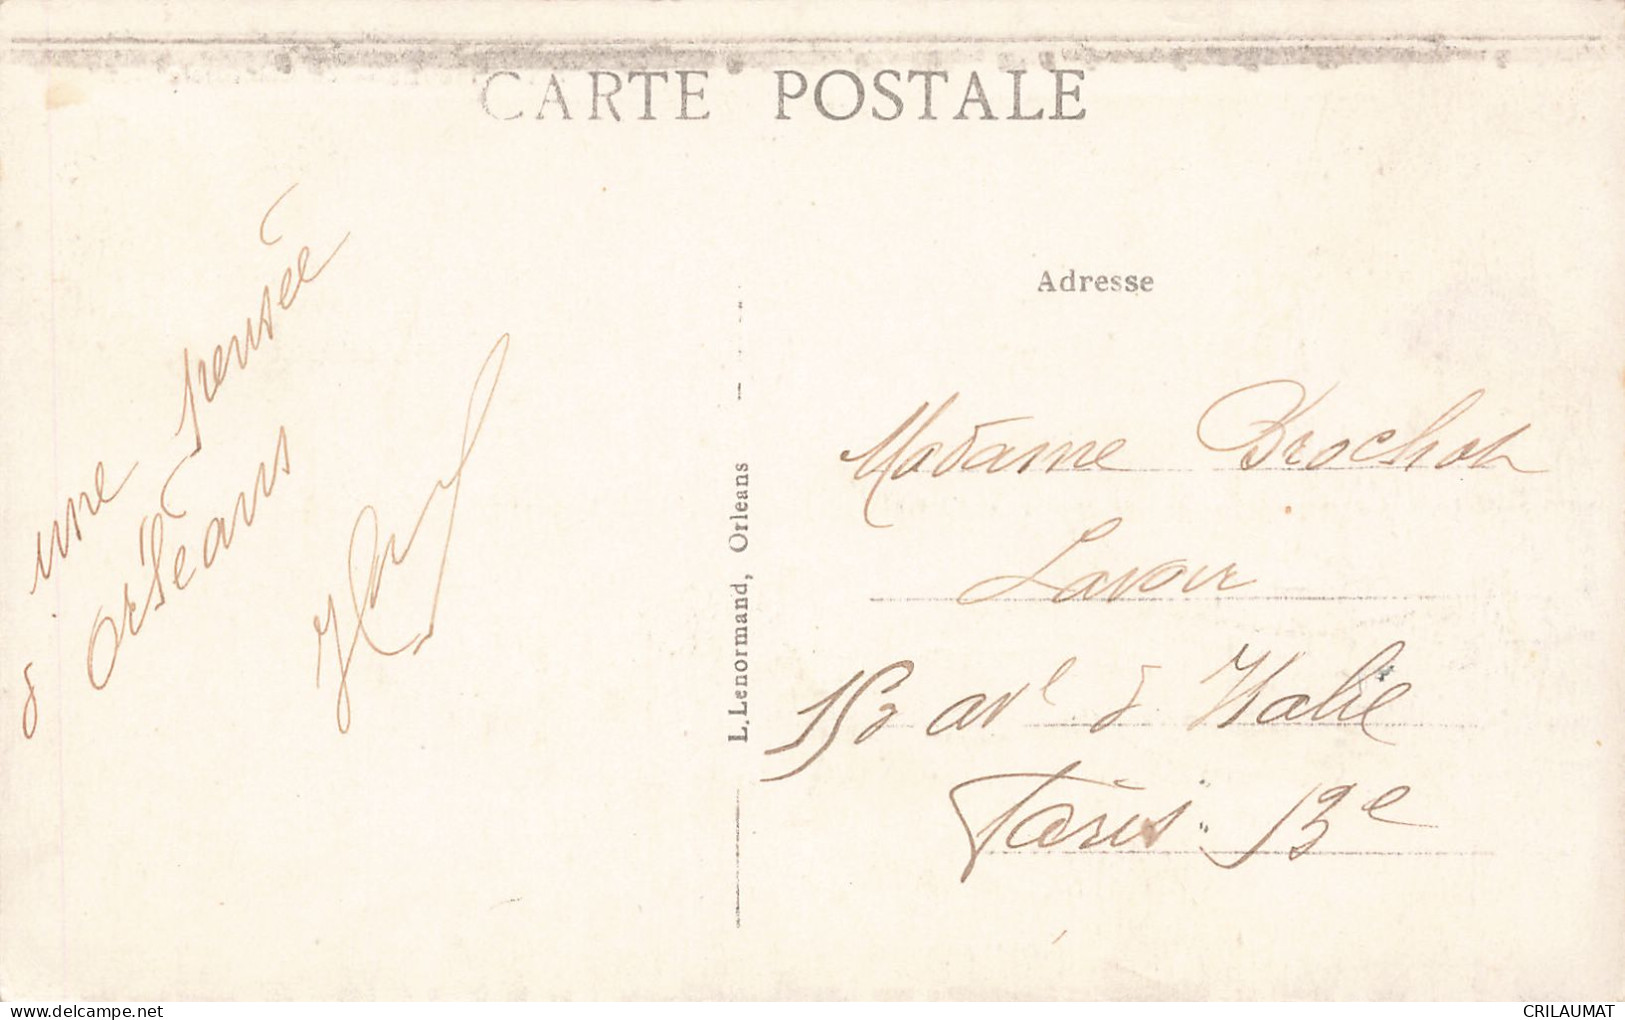 CARTE POSTALE
une pensée
d'Orléans
L. Lenormand, Orleans
Adresse
Madame Brochot
Lavoir
152 ave d'Italie
Paris 13e
CRILAUMAT